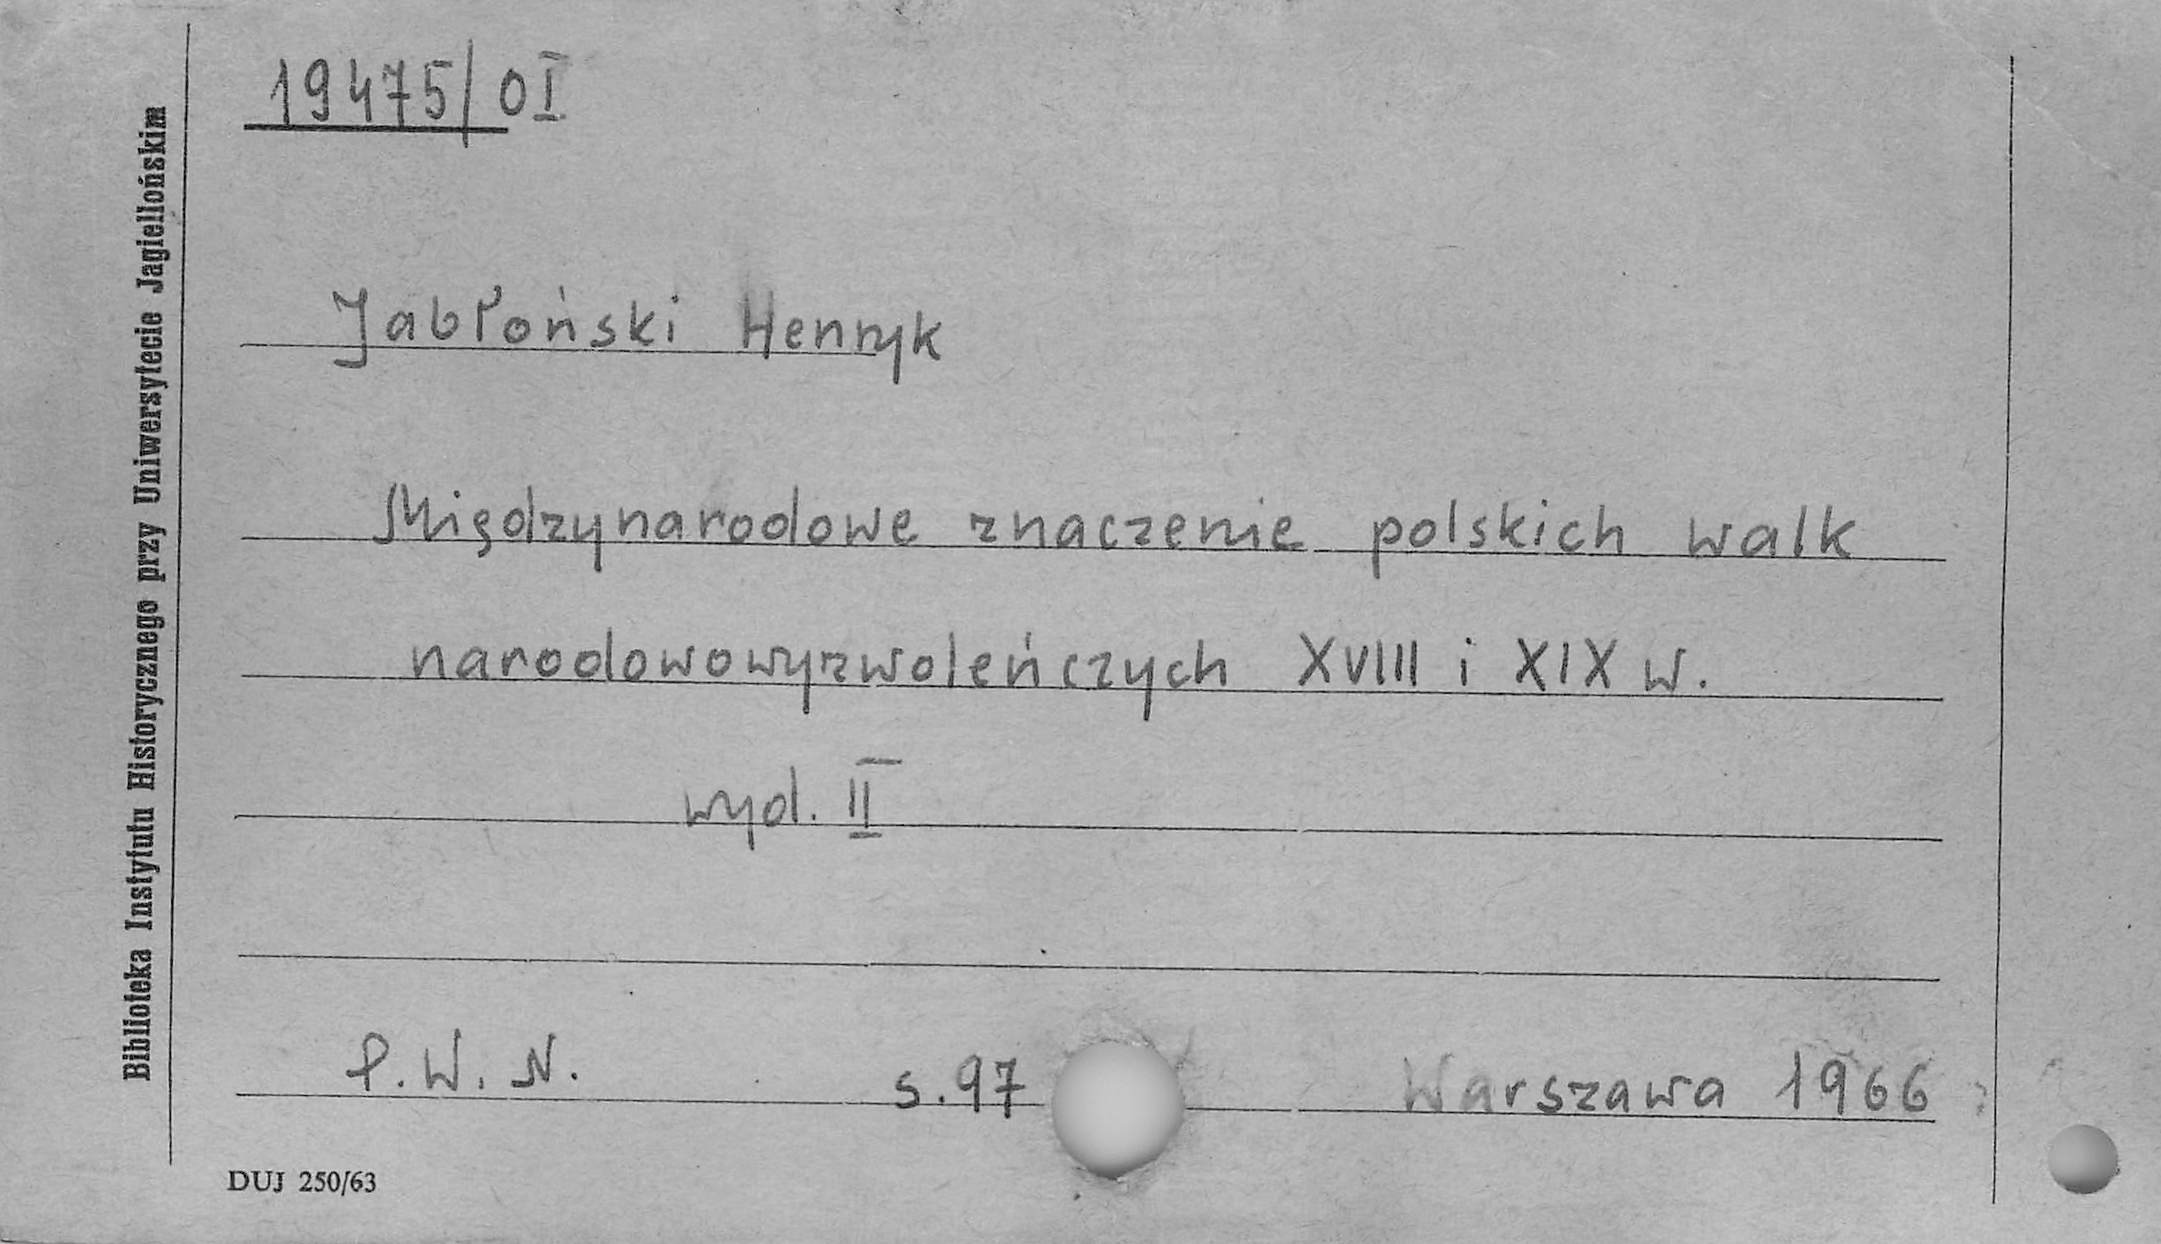 19475/OI
Biblioteka Instytutu Historycznego przy Uniwersytecie Jagiellońskim
Jabłoński Henryk
Międzynarodowe znaczenie polskich walk
narodowowyzwoleńczych XVIII i XIX w.
wyd. II
P. W. N. s. 97 Warszawa 1966
DUJ 250/63